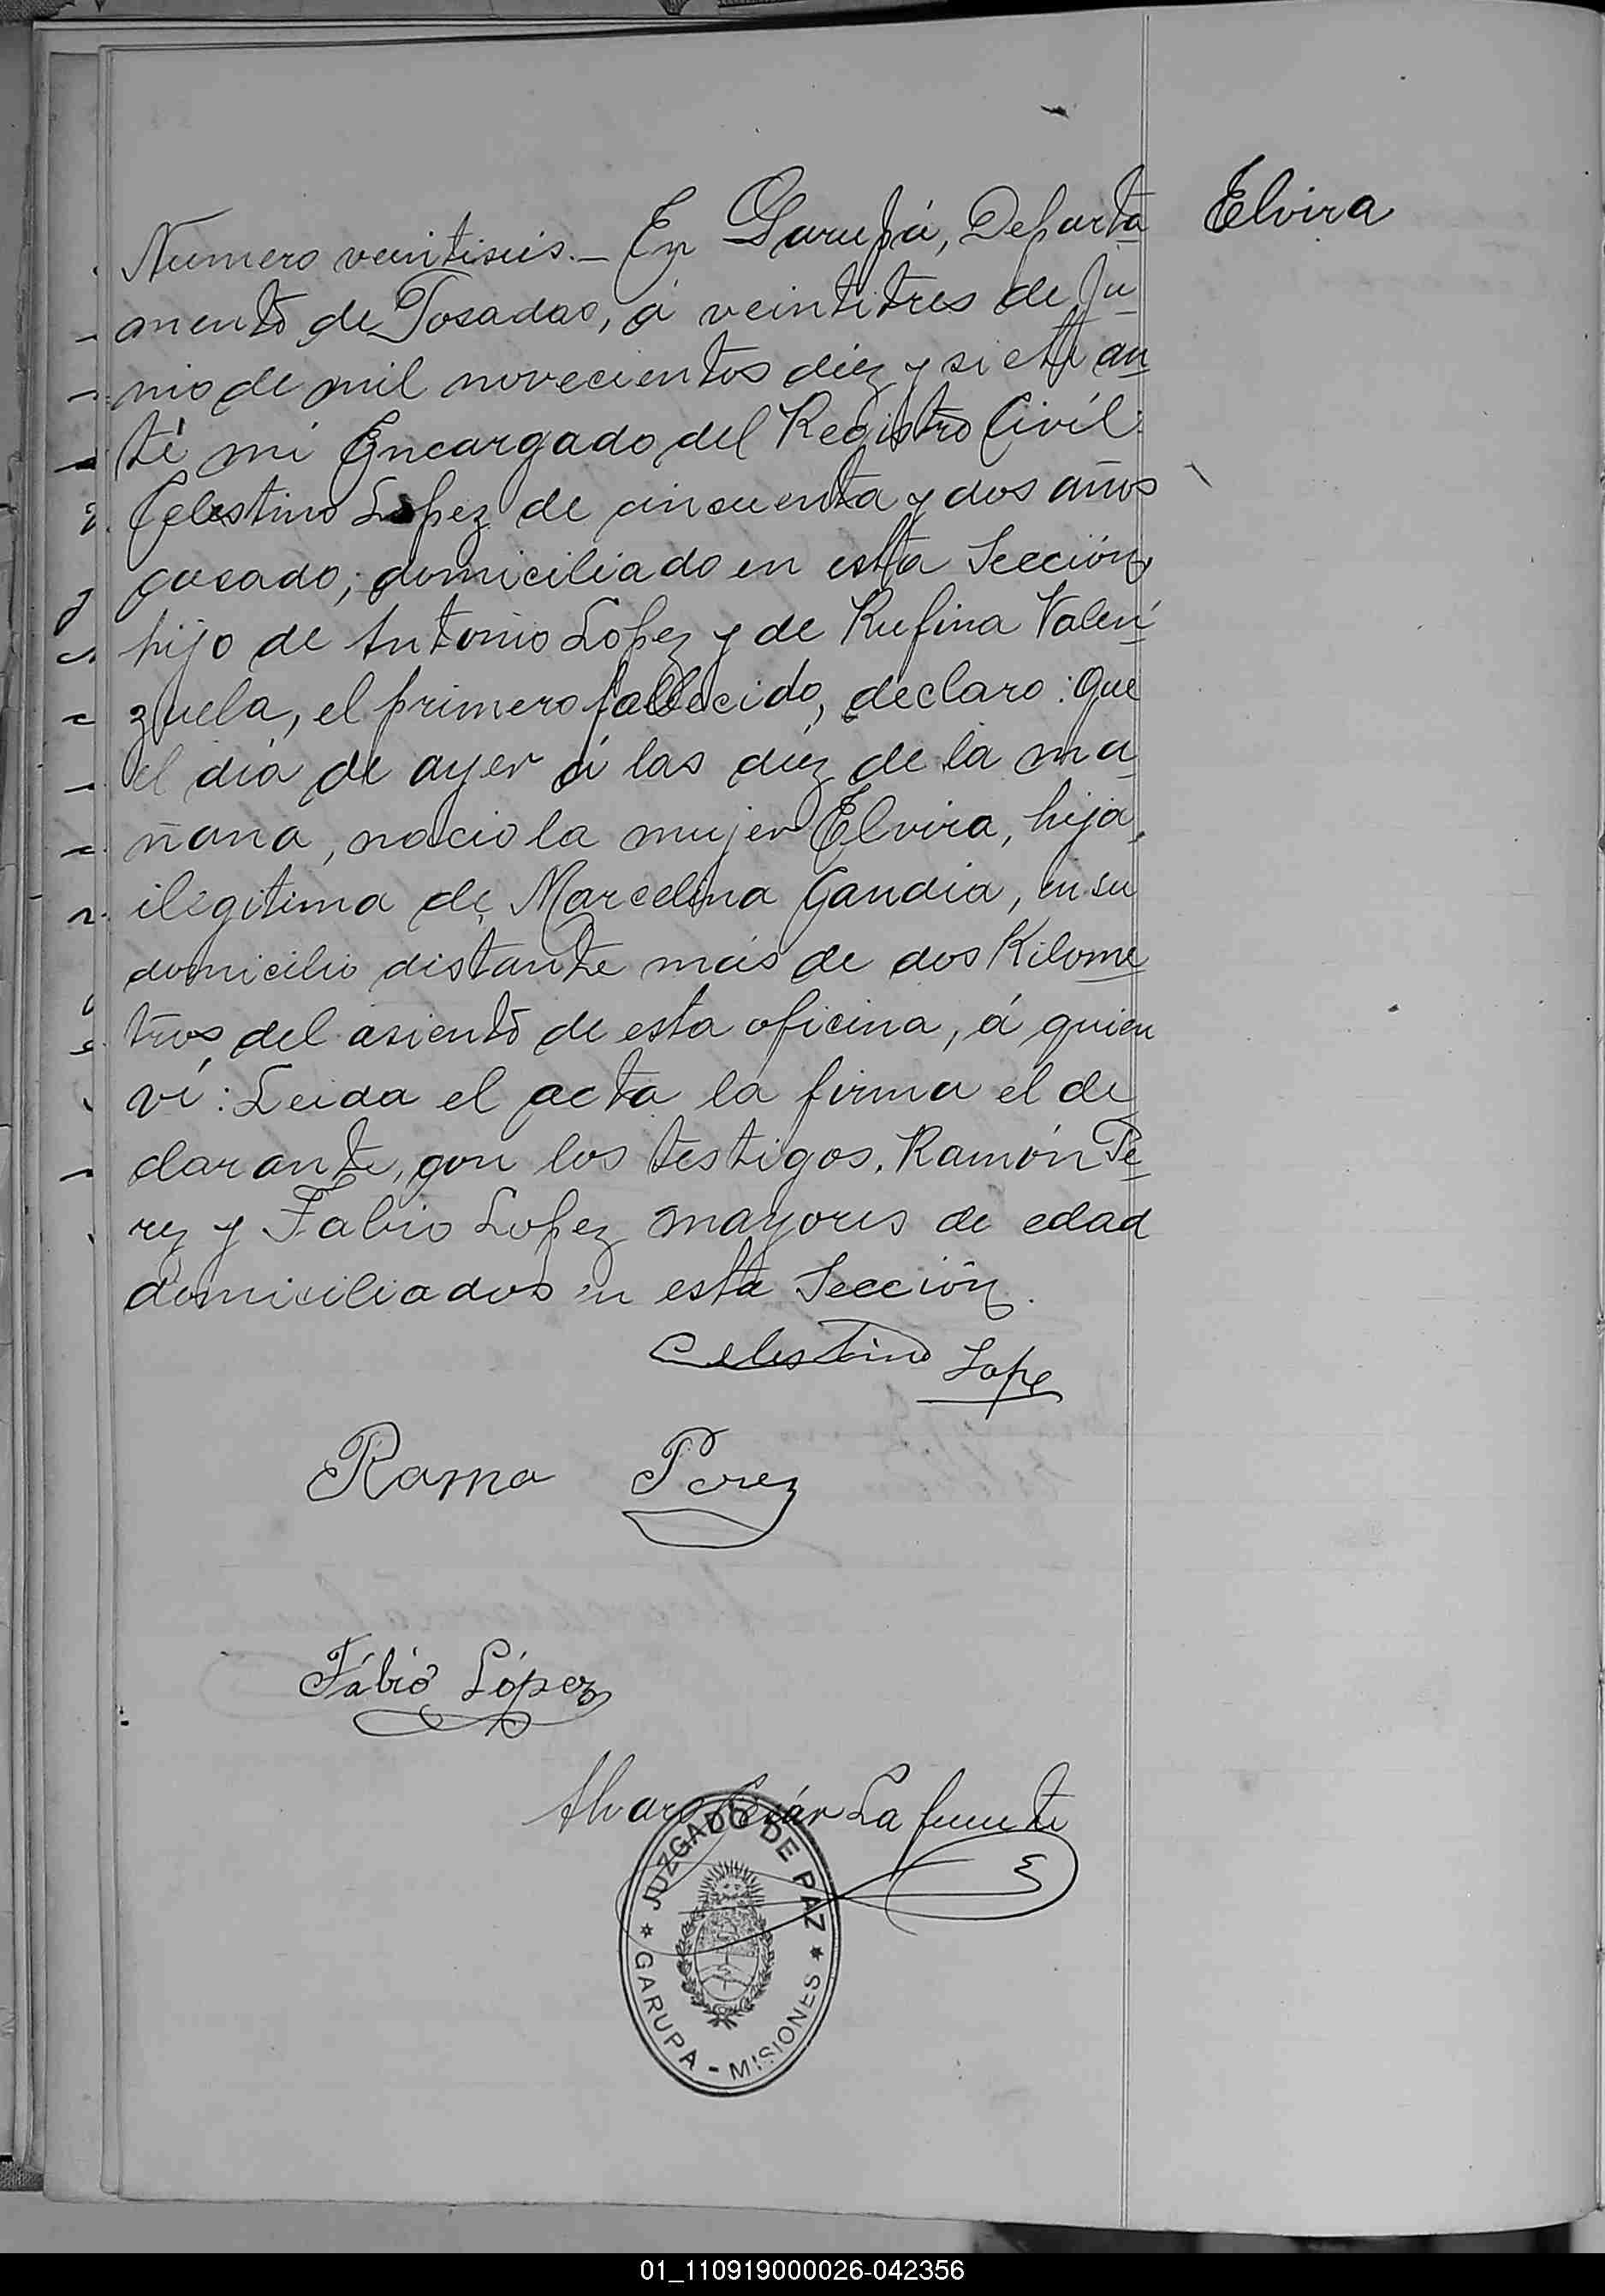 Elvira
Numero veintiseis.- En Garupá, Departa
mento de Posadas, á veintitres de Ju
nio de mil novecientos diez y siete an
te mi Encargado del Registro Civil:
Celestino Lopez de cincuenta y dos años
casado, domiciliado en esta Sección,
hijo de Antonio Lopez y de Rufina Valen
zuela, el primero fallecido, declaro: Que
el día de ayer á las diez de la ma
ñana, nacio la mujer Elvira, hija
ilegitima de Marcelina Gandia, en su
domicilio distante más de dos Kilome
tros del asiento de esta oficina, á quien
ví: Leida el acta la firma el de
clarante, con los testigos, Ramón Pe
rez y Fabio Lopez mayores de edad
domiciliados en esta Sección.
Celestino Lope
Ramo Perez
Fábio López
Alvaro César Lafuente
JUZGADO DE PAZ
GARUPA - MISIONES
01_110919000026-042356